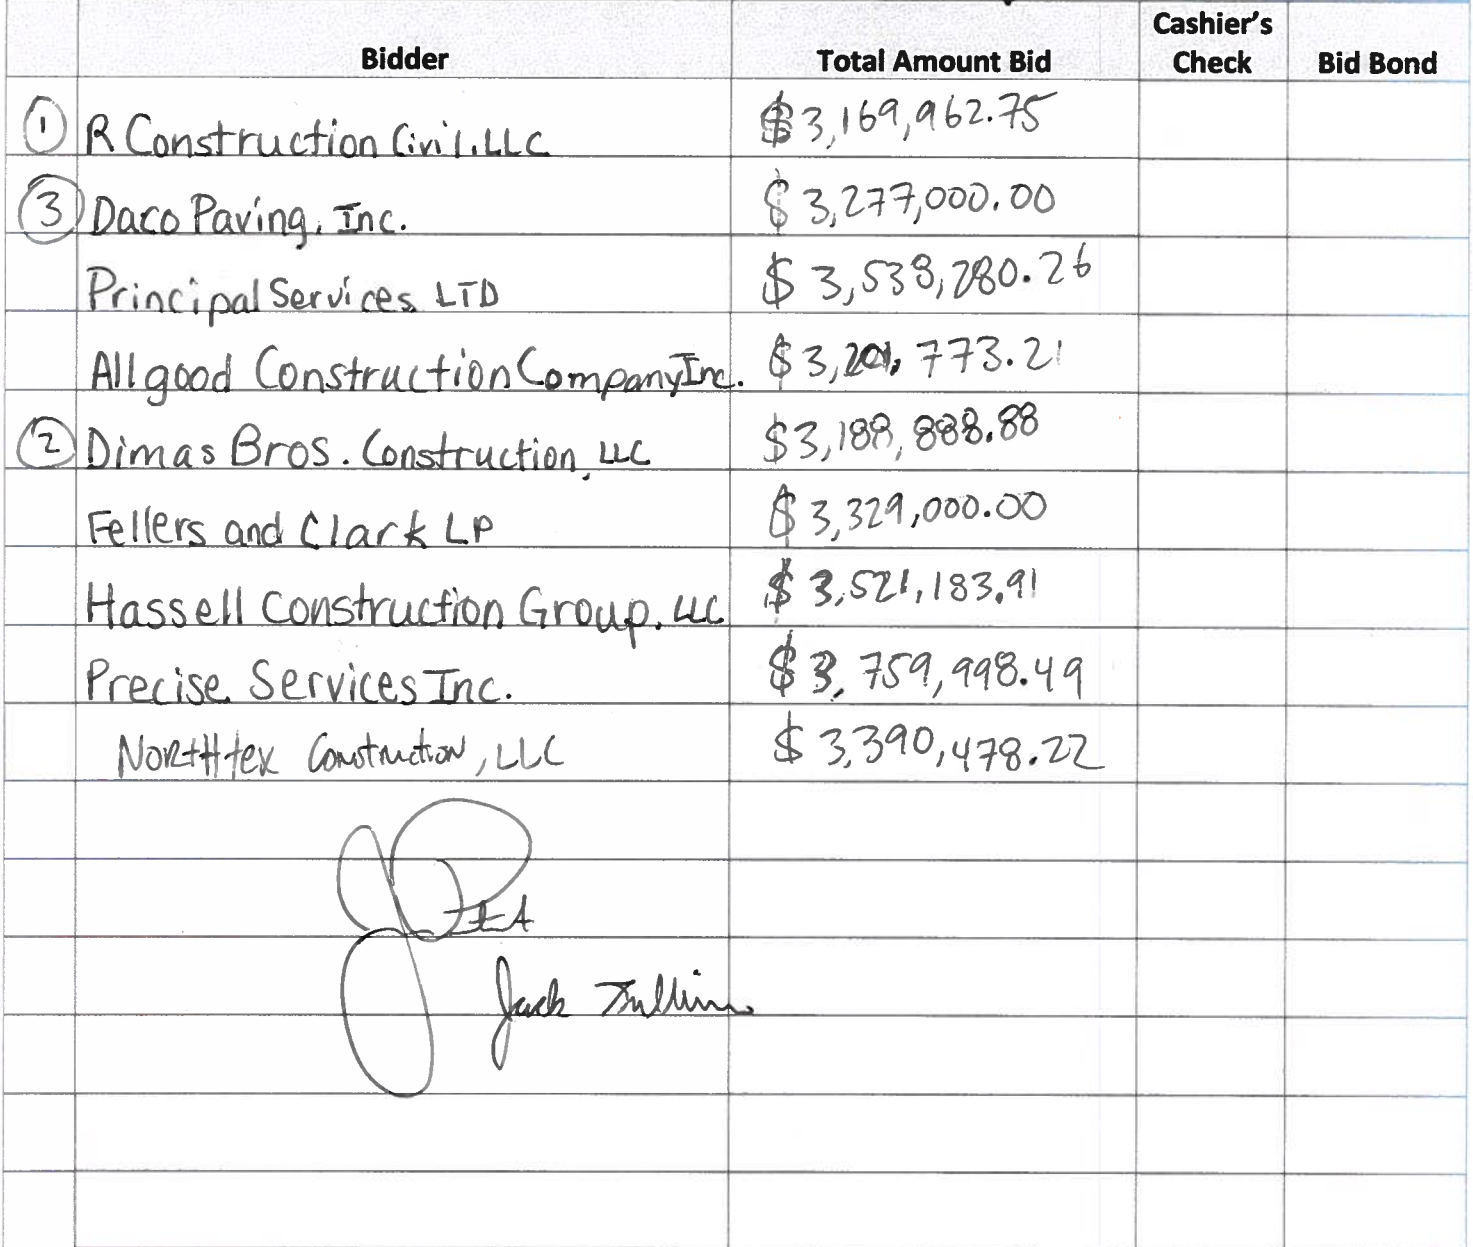 Bidder Total Amount Bid Cashier's Check Bid Bond
① R Construction Civil, LLC $3,169,962.75
③ Daco Paving, Inc. $3,277,000.00
Principal Services LTD $3,538,280.26
Allgood Construction Company Inc. $3,201,773.21
② Dimas Bros. Construction, LLC $3,188,888.88
Fellers and Clark LP $3,329,000.00
Hassell Construction Group, LLC $3,521,183.91
Precise Services Inc. $3,759,998.49
Northtex Construction, LLC $3,390,478.22
Jack